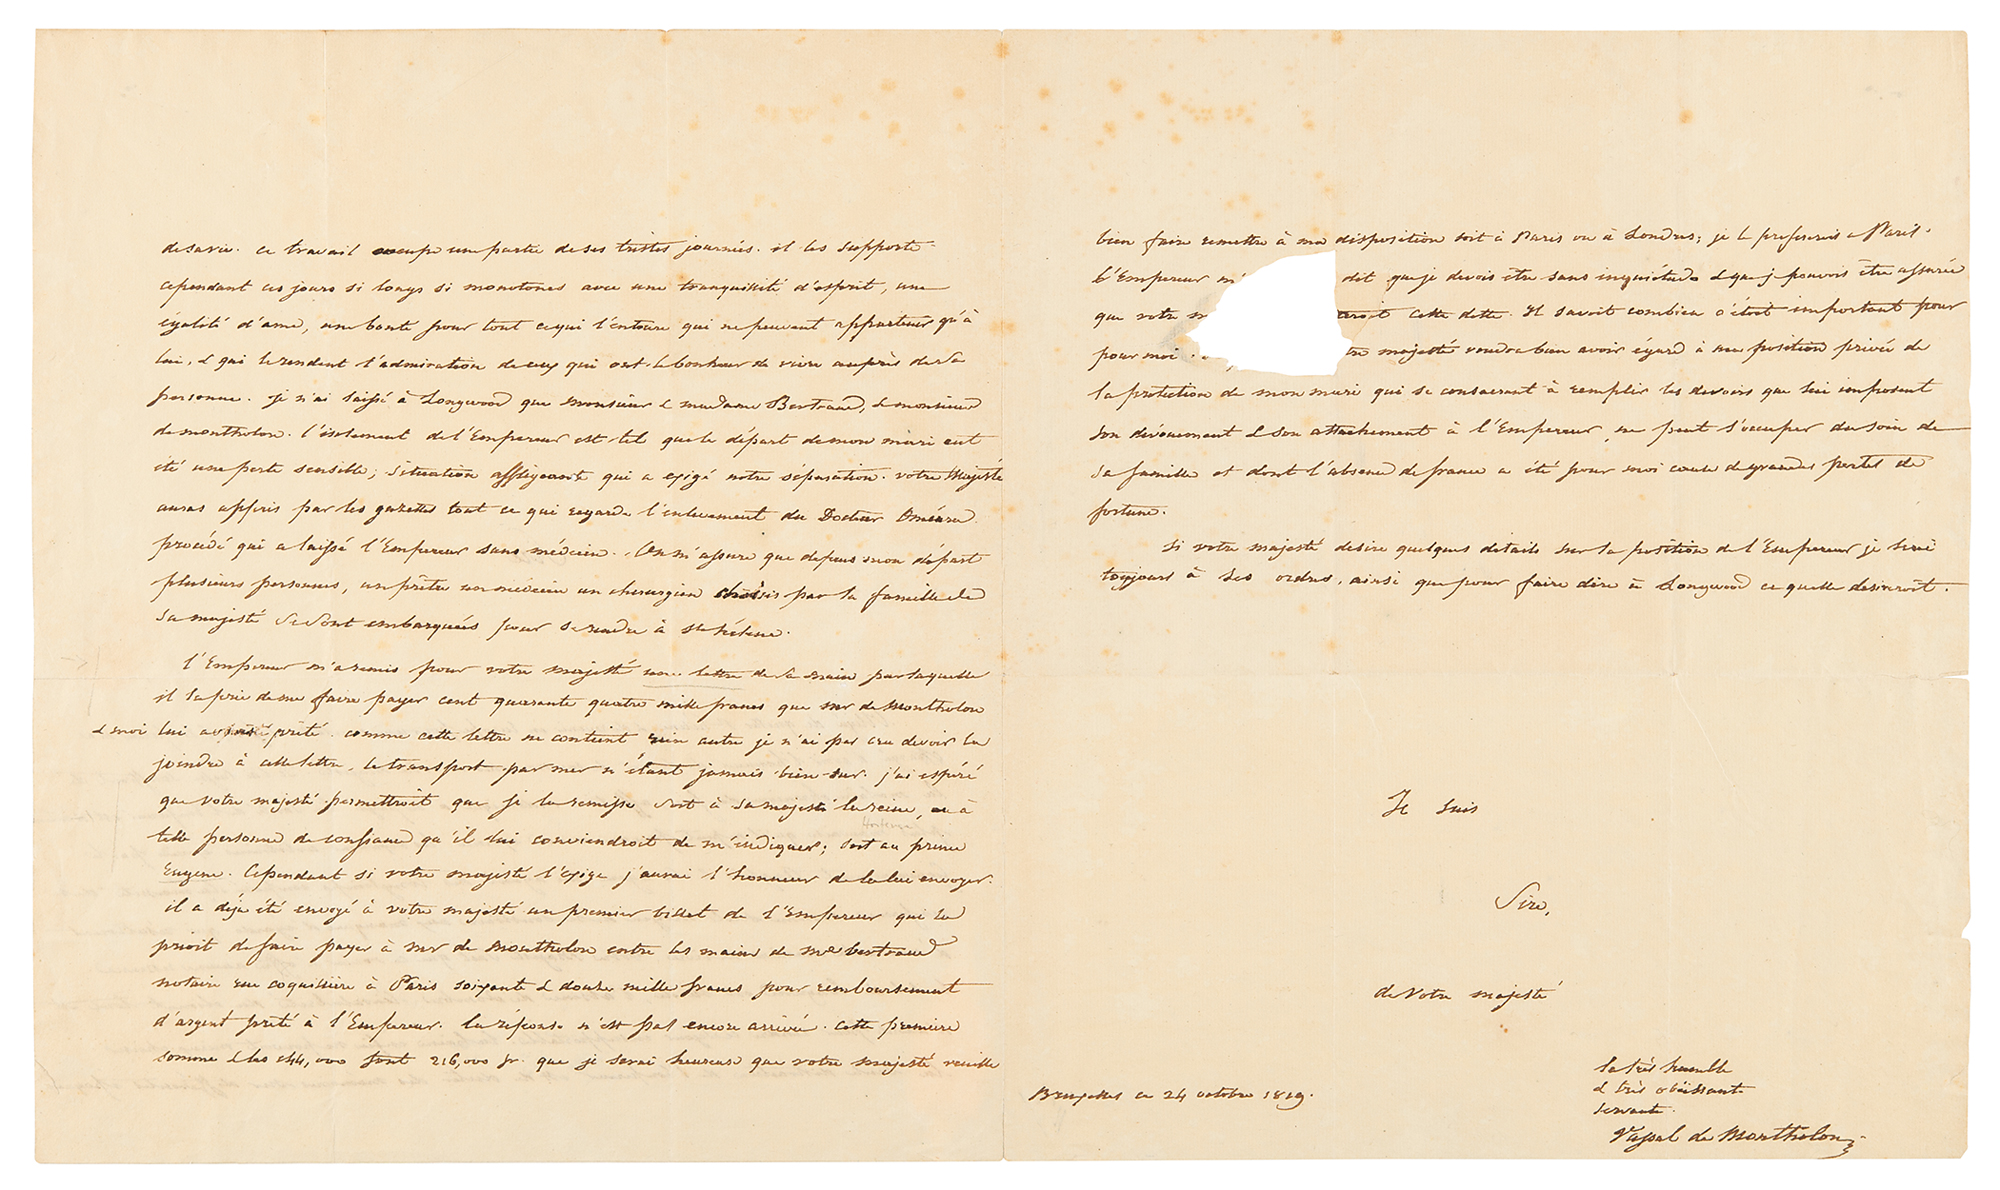 de sa vie. ce travail occupe une partie de ses tristes journées. il les supporte
cependant ces jours si longs si monotones avec une tranquillité d'esprit, une
égalité d'ame, une bonté pour tout ce qui l'entoure qui ne peuvent appartenir qu'à
lui, & qui le rendent l'admiration de ceux qui ont le bonheur de vivre auprès de sa
personne. je n'ai laissé à Longwood que monsieur & madame Bertrand, & monsieur
de montholon. l'isolement de l'Empereur est tel que le départ de mon mari eut
été une perte sensible; situation affligeante qui a exigé notre séparation. votre Majesté
auras appris par les gazettes tout ce qui regarde l'enlevement du Docteur Oméara
procédé qui a laissé l'Empereur sans médecin. On m'assure que depuis mon départ
plusieurs personnes, un prêtre un médecin un chirurgien choisis par la famille de
sa majesté se sont embarquées pour se rendre à ste hélene.
l'Empereur m'a remis pour votre majesté une lettre de sa main par laquelle
il la prie de me faire payer cent quarante quatre mille francs que mr de Montholon
& moi lui avons prêté. comme cette lettre ne contient rien autre je n'ai pas cru devoir la
joindre à cette lettre, le transport par mer n'étant jamais bien sur. j'ai espéré
que votre majesté permettroit que je la remisse soit à sa majesté la reine, ou à
Hortense
telle personne de confiance qu'il lui conviendroit de m'indiquer; soit au prince
Eugene. Cependant si votre majesté l'exige j'aurai l'honneur de la lui envoyer.
il a déja été envoyé à votre majesté un premier billet de l'Empereur qui la
prioit de faire payer à mr de Montholon entre les mains de me bertrand
notaire rue coquillière à Paris soixante & douze mille francs pour remboursement
d'argent prêté à l'Empereur. la réponse n'est pas encore arrivée. cette premiere
somme & les 144,000 font 216,000 fr. que je serai heureuse que votre majesté veuille
bien faire remettre à ma disposition soit à Paris ou à Londres; je le prefererois a Paris.
l'Empereur m' dit que je devois être sans inquiétude & que je pouvois être assurée
que votre cette dette. Il savoit combien c'étoit important pour
pour moi. majesté voudra bien avoir égard à ma position privée de
la protection de mon mari qui se consacrant à remplir les devoirs que lui imposent
son dévouement & son attachement à l'Empereur, ne peut s'occuper du soin de
sa famille et dont l'absence de france a été pour moi cause de grandes pertes de
fortune.
si votre majesté desire quelques details sur la position de l'Empereur je serai
toujours à ses ordres, ainsi que pour faire dire à Longwood ce quelle desireroit.
Je suis
Sire,
de Votre majesté
la très humble
& très obéissante
servante.
Vassal de Montholon
Bruxelles ce 24 octobre 1819.